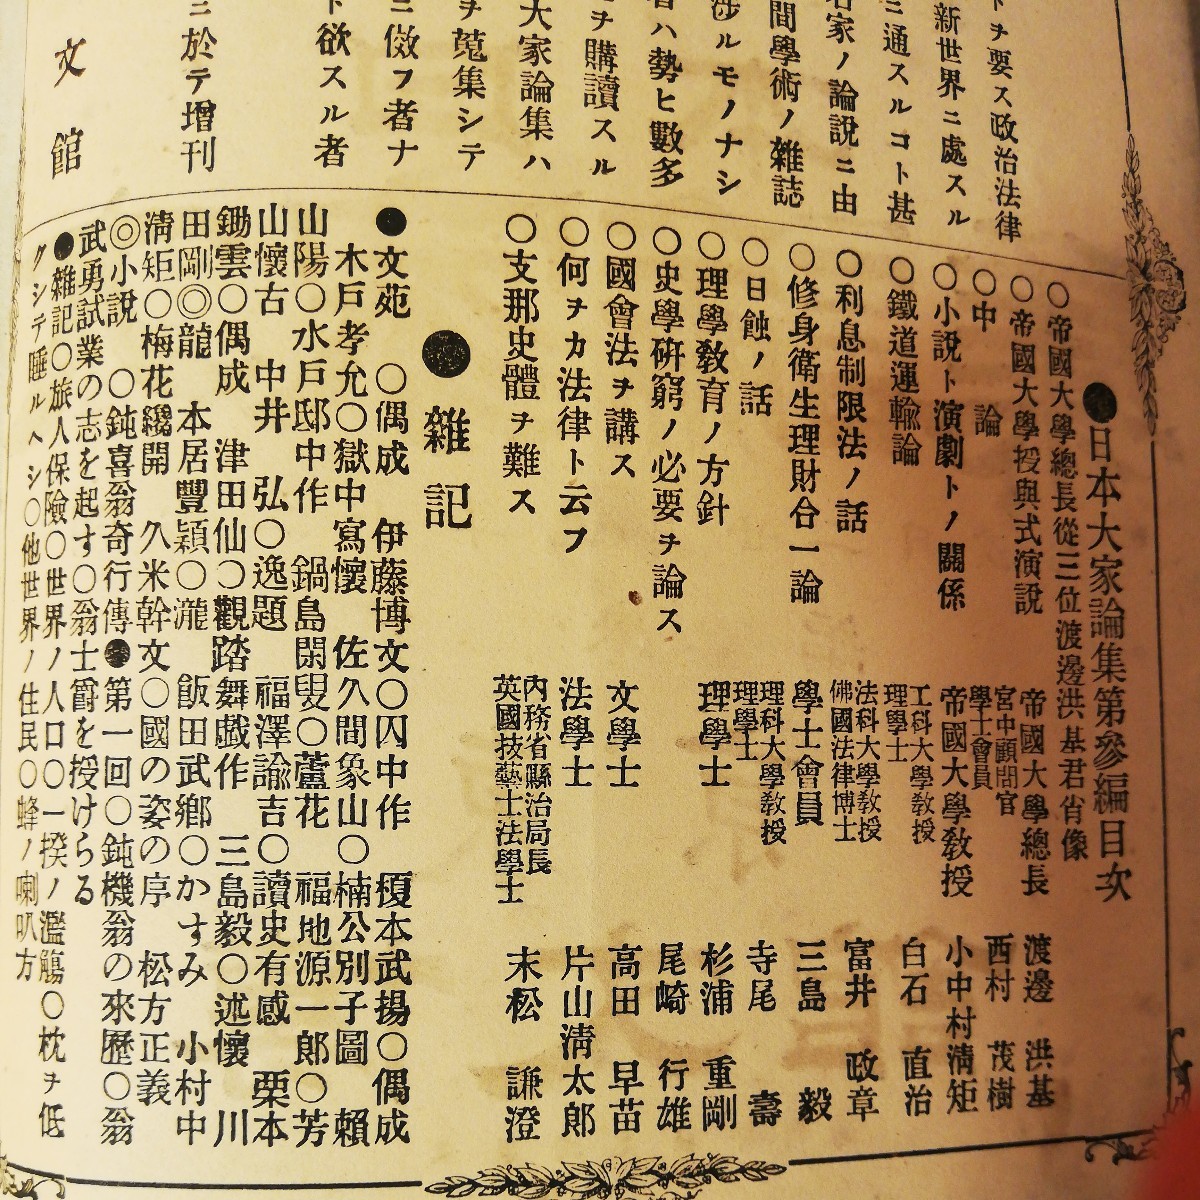 トヲ要ス政治法律
新世界ニ處スル
ニ通スルコト甚
名家ノ論說ニ由
間學術ノ雜誌
涉ルモノナシ
者ハ勢ヒ數多
ヲ購讀スル
大家論集ハ
ヲ蒐集シテ
ニ傚フ者ナ
ト欲スル者
ニ於テ增刊
文館
●日本大家論集第參編目次
○帝國大學總長從三位渡邊洪基君肖像
○帝國大學授與式演說 帝國大學總長 渡邊洪基
○中論 宮中顧問官 學士會員 西村茂樹
○小說ト演劇トノ關係 帝國大學敎授 小中村淸矩
○鐵道運輸論 工科大學敎授 理學士 白石直治
○利息制限法ノ話 法科大學敎授 佛國法律博士 富井政章
○修身衛生理財合一論 學士會員 三島毅
○日蝕ノ話 理科大學敎授 理學士 寺尾壽
○理學敎育ノ方針 理學士 杉浦重剛
○史學硏窮ノ必要ヲ論ス 尾崎行雄
○國會法ヲ講ス 文學士 高田早苗
○何ヲカ法律ト云フ 法學士 片山淸太郎
○支那史體ヲ難ス 內務省縣治局長 英國技藝士法學士 末松謙澄
●雜記
●文苑 ○偶成 伊藤博文○囚中作 榎本武揚○偶成
木戸孝允○獄中寫懷 佐久間象山○楠公別子圖 賴
山陽○水戸邸中作 鍋島閑叟○蘆花 福地源一郎○芳
山懷古 中井弘○逸題 福澤諭吉○讀史有感 栗本
鋤雲○偶成 津田仙○觀踏舞戲作 三島毅○述懷 川
田剛◎龍 本居豐穎○瀧 飯田武鄕○かすみ 小村中
淸矩○梅花纔開 久米幹文○國の姿の序 松方正義
◎小說 ○鈍喜翁奇行傳●第一回○鈍機翁の來歷○翁
武勇試業の志を起す○翁士爵を授けらる
●雜記○旅人保險○世界ノ人口○一揆ノ濫觴○枕ヲ低
クシテ睡ルヘシ○他世界ノ住民○蜂ノ喇叭方